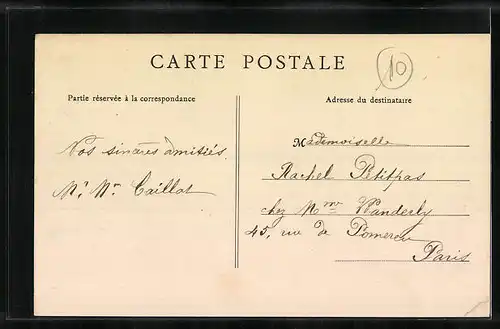 CARTE POSTALE
10
Partie réservée à la correspondance
Adresse du destinataire
Vos sincères amitiés.
Mademoiselle
Rachel Petitpas
Caillot
chez Mme Wanderly
45, rue de
Paris